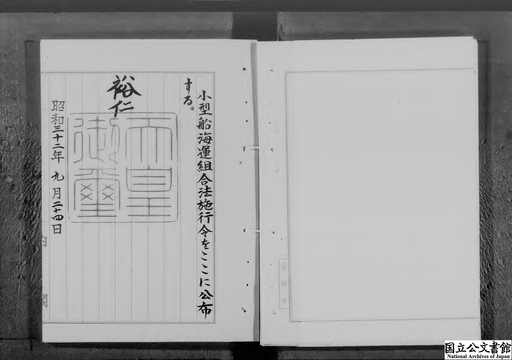 小型船海運組合法施行令をここに公布
する。
裕仁
天皇
御璽
昭和三十二年九月二十四日
内
閣
国立公文書館
National Archives of Japan